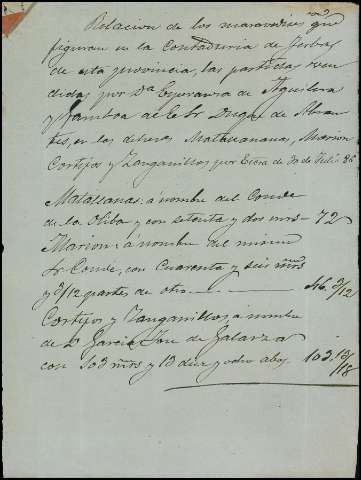 Relacion de los maravedises que
figuran en la Contaduria de Yerbas
de esta provincia, las partidas ven
didas por Dª Esperanza de Aguilera
y Gamboa al Sr Duque de Abran
tes, en las dehesas Matazanas, Marion
Cortijos y Zanganillos por Escra de 30 de Julio 86
Matazanas: á nombre del Conde
de la Oliba y con setenta y dos mrs - 72
Marion: á nombre del mismo
Sr Conde, con Cuarenta y seis mrs
y 3/12 partes de otro 46. 3/12
Cortijos y Zanganillos a nombre
de Dn Garcia José de Galarza
con 103 mrs y 13 diez y ocho abos 103. 13/18